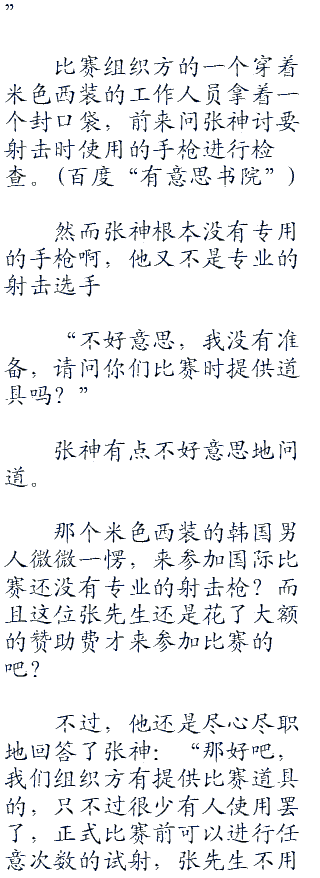 ”
比赛组织方的一个穿着
米色西装的工作人员拿着一
个封口袋，前来问张神讨要
射击时使用的手枪进行检
查。(百度“有意思书院”)
然而张神根本没有专用
的手枪啊，他又不是专业的
射击选手
“不好意思，我没有准
备，请问你们比赛时提供道
具吗？”
张神有点不好意思地问
道。
那个米色西装的韩国男
人微微一愣，来参加国际比
赛还没有专业的射击枪？而
且这位张先生还是花了大额
的赞助费才来参加比赛的
吧？
不过，他还是尽心尽职
地回答了张神：“那好吧，
我们组织方有提供比赛道具
的，只不过很少有人使用罢
了，正式比赛前可以进行任
意次数的试射，张先生不用